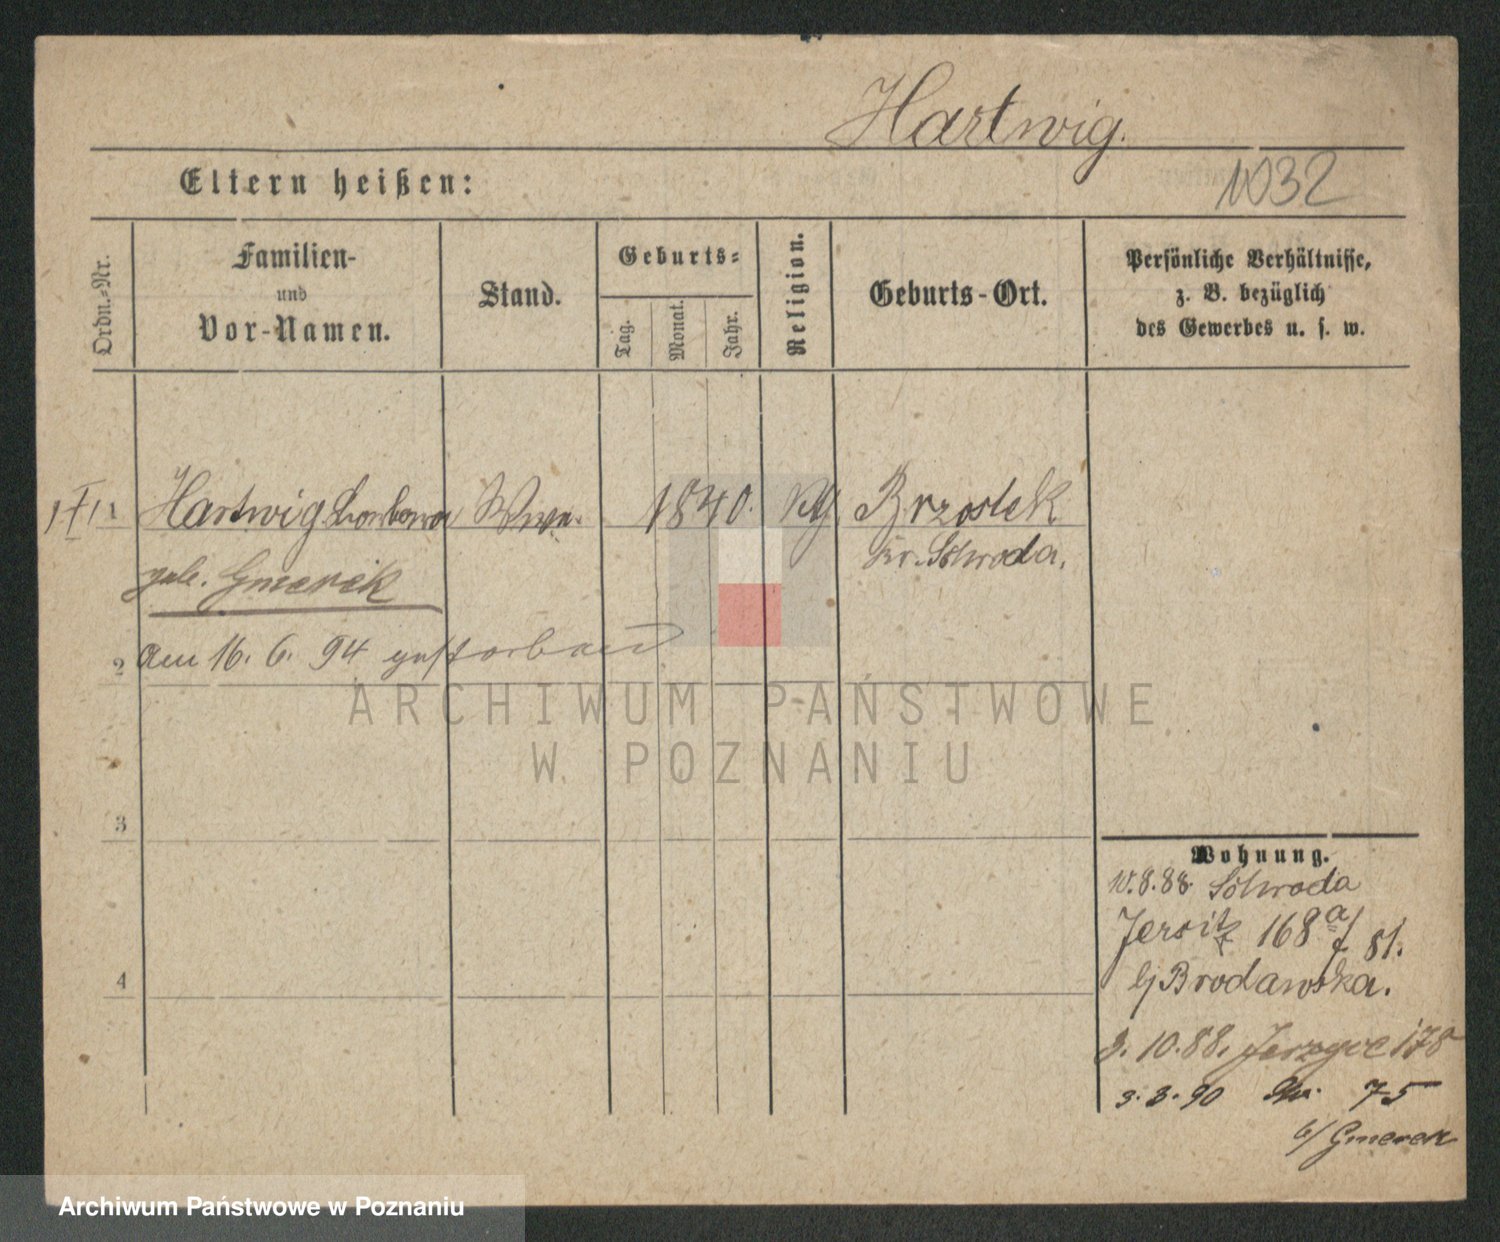 Hartwig.
1032
Eltern heißen:
Ordn.-Nr.
Familien-
und
Vor-Namen.
Stand.
Geburts-
Tag.
Monat.
Jahr.
Religion.
Geburts-Ort.
Persönliche Verhältnisse,
z. B. bezüglich
des Gewerbes u. s. w.
1 Hartwig Wwe. 1840. Brzostek
geb. Gmerek Kr. Schroda.
2 am 16. 6. 94 gestorben
ARCHIWUM PAŃSTWOWE
W POZNANIU
3
4
Wohnung.
10.8.88. Schroda
Jersitz 168 a/
b/ Brodawska.
3. 10. 88. Jerzyce 178
3. 3. 90 75
b/ Gmerek
Archiwum Państwowe w Poznaniu